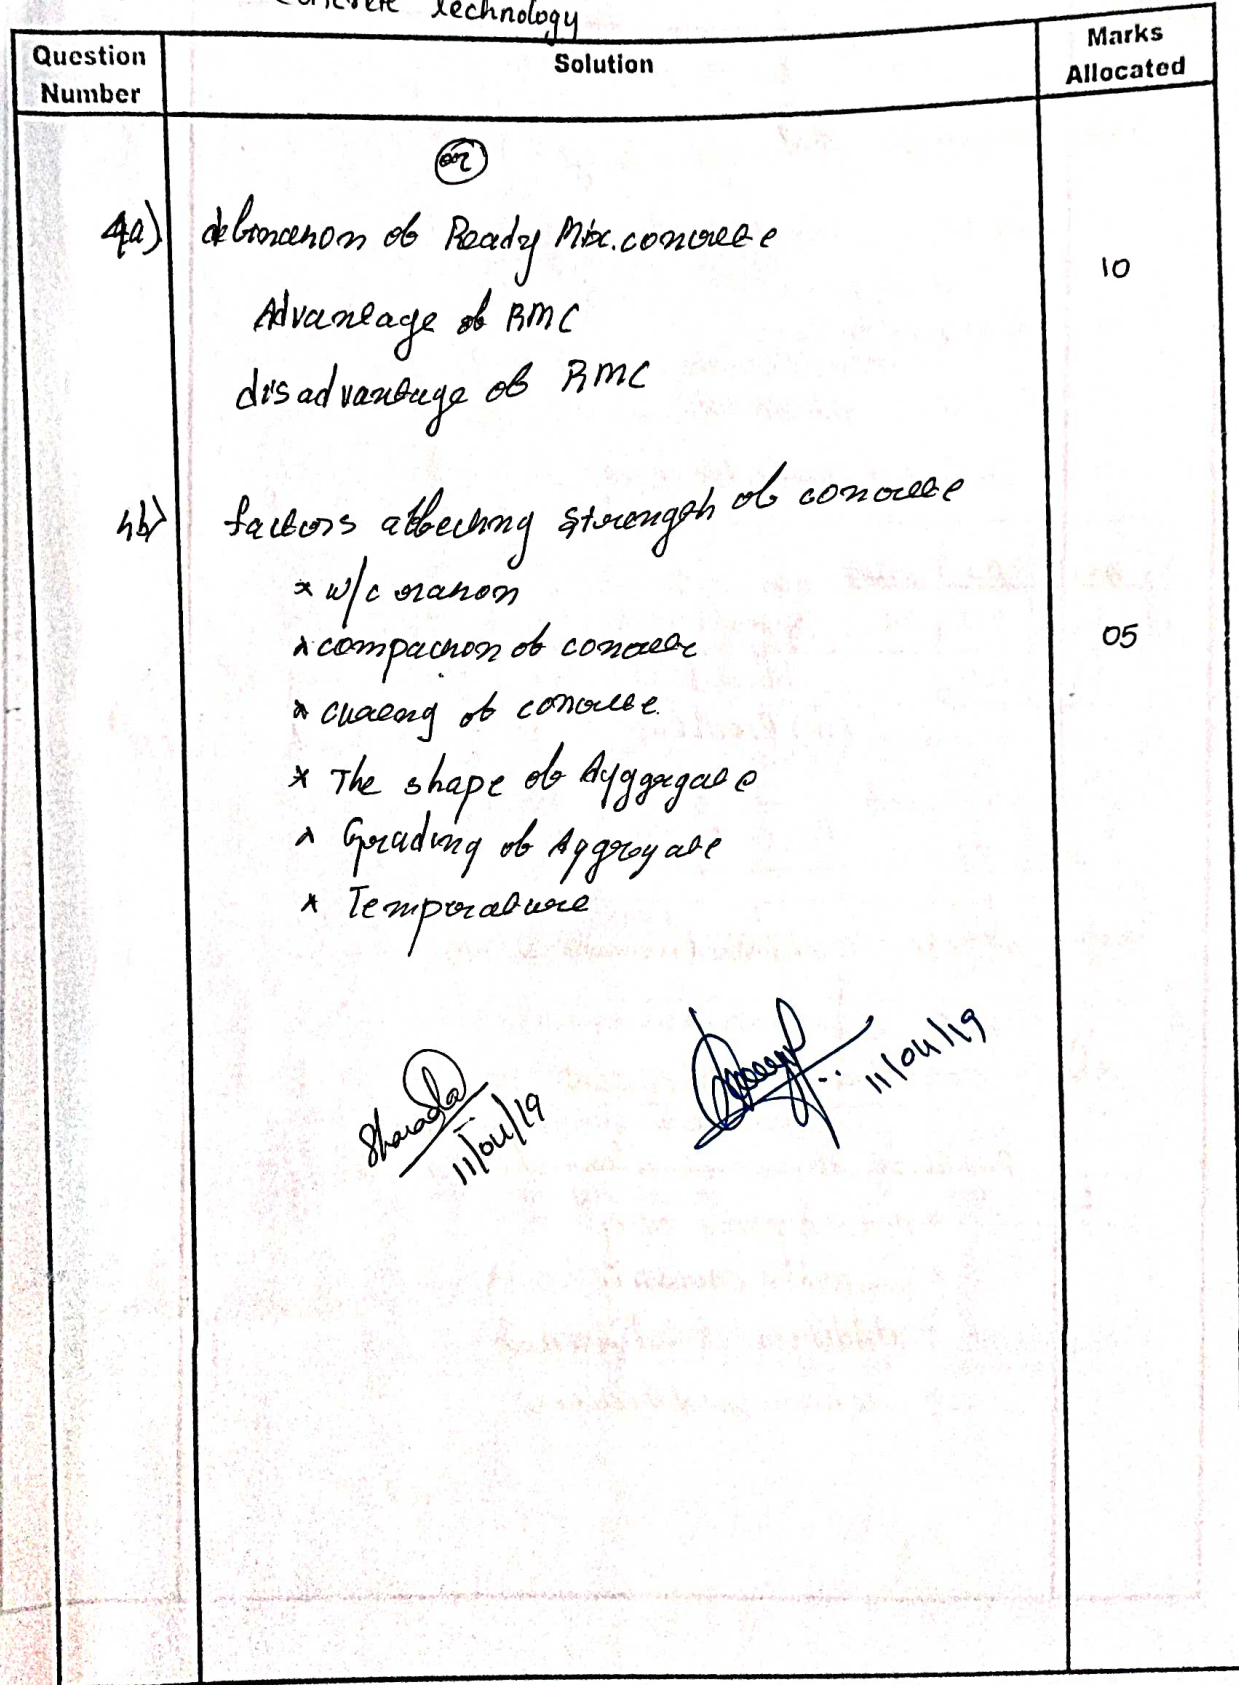 Concrete Technology
Question Number
Solution
Marks Allocated
or
4a) defination of Ready Mix.concrete
10
Advantage of RMC
disadvantage of RMC
4b) factors affecting strength of concrete
* w/c ration
* compaction of concrete
05
* curing of concrete.
* The shape of Aggregate
* Grading of Aggregate
* Temperature
Sharada
11/04/19
11/04/19